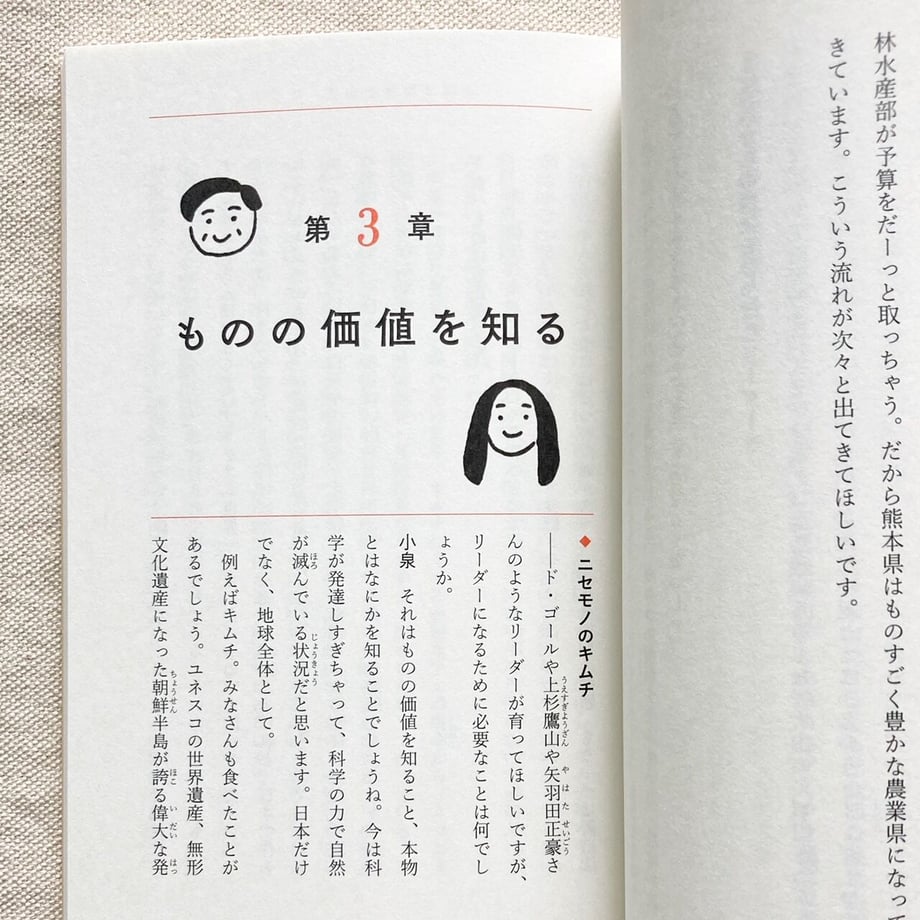 林水産部が予算をだーっと取っちゃう。だから熊本県はものすごく豊かな農業県になって
きています。こういう流れが次々と出てきてほしいです。
第3章
ものの価値を知る
◆ニセモノのキムチ
――ド・ゴールや上杉鷹山や矢羽田正豪さ
んのようなリーダーが育ってほしいですが、
リーダーになるために必要なことは何でし
ょうか。
小泉　それはものの価値を知ること、本物
とはなにかを知ることでしょうね。今は科
学が発達しすぎちゃって、科学の力で自然
が滅んでいる状況だと思います。日本だけ
でなく、地球全体として。
　例えばキムチ。みなさんも食べたことが
あるでしょう。ユネスコの世界遺産、無形
文化遺産になった朝鮮半島が誇る偉大な発